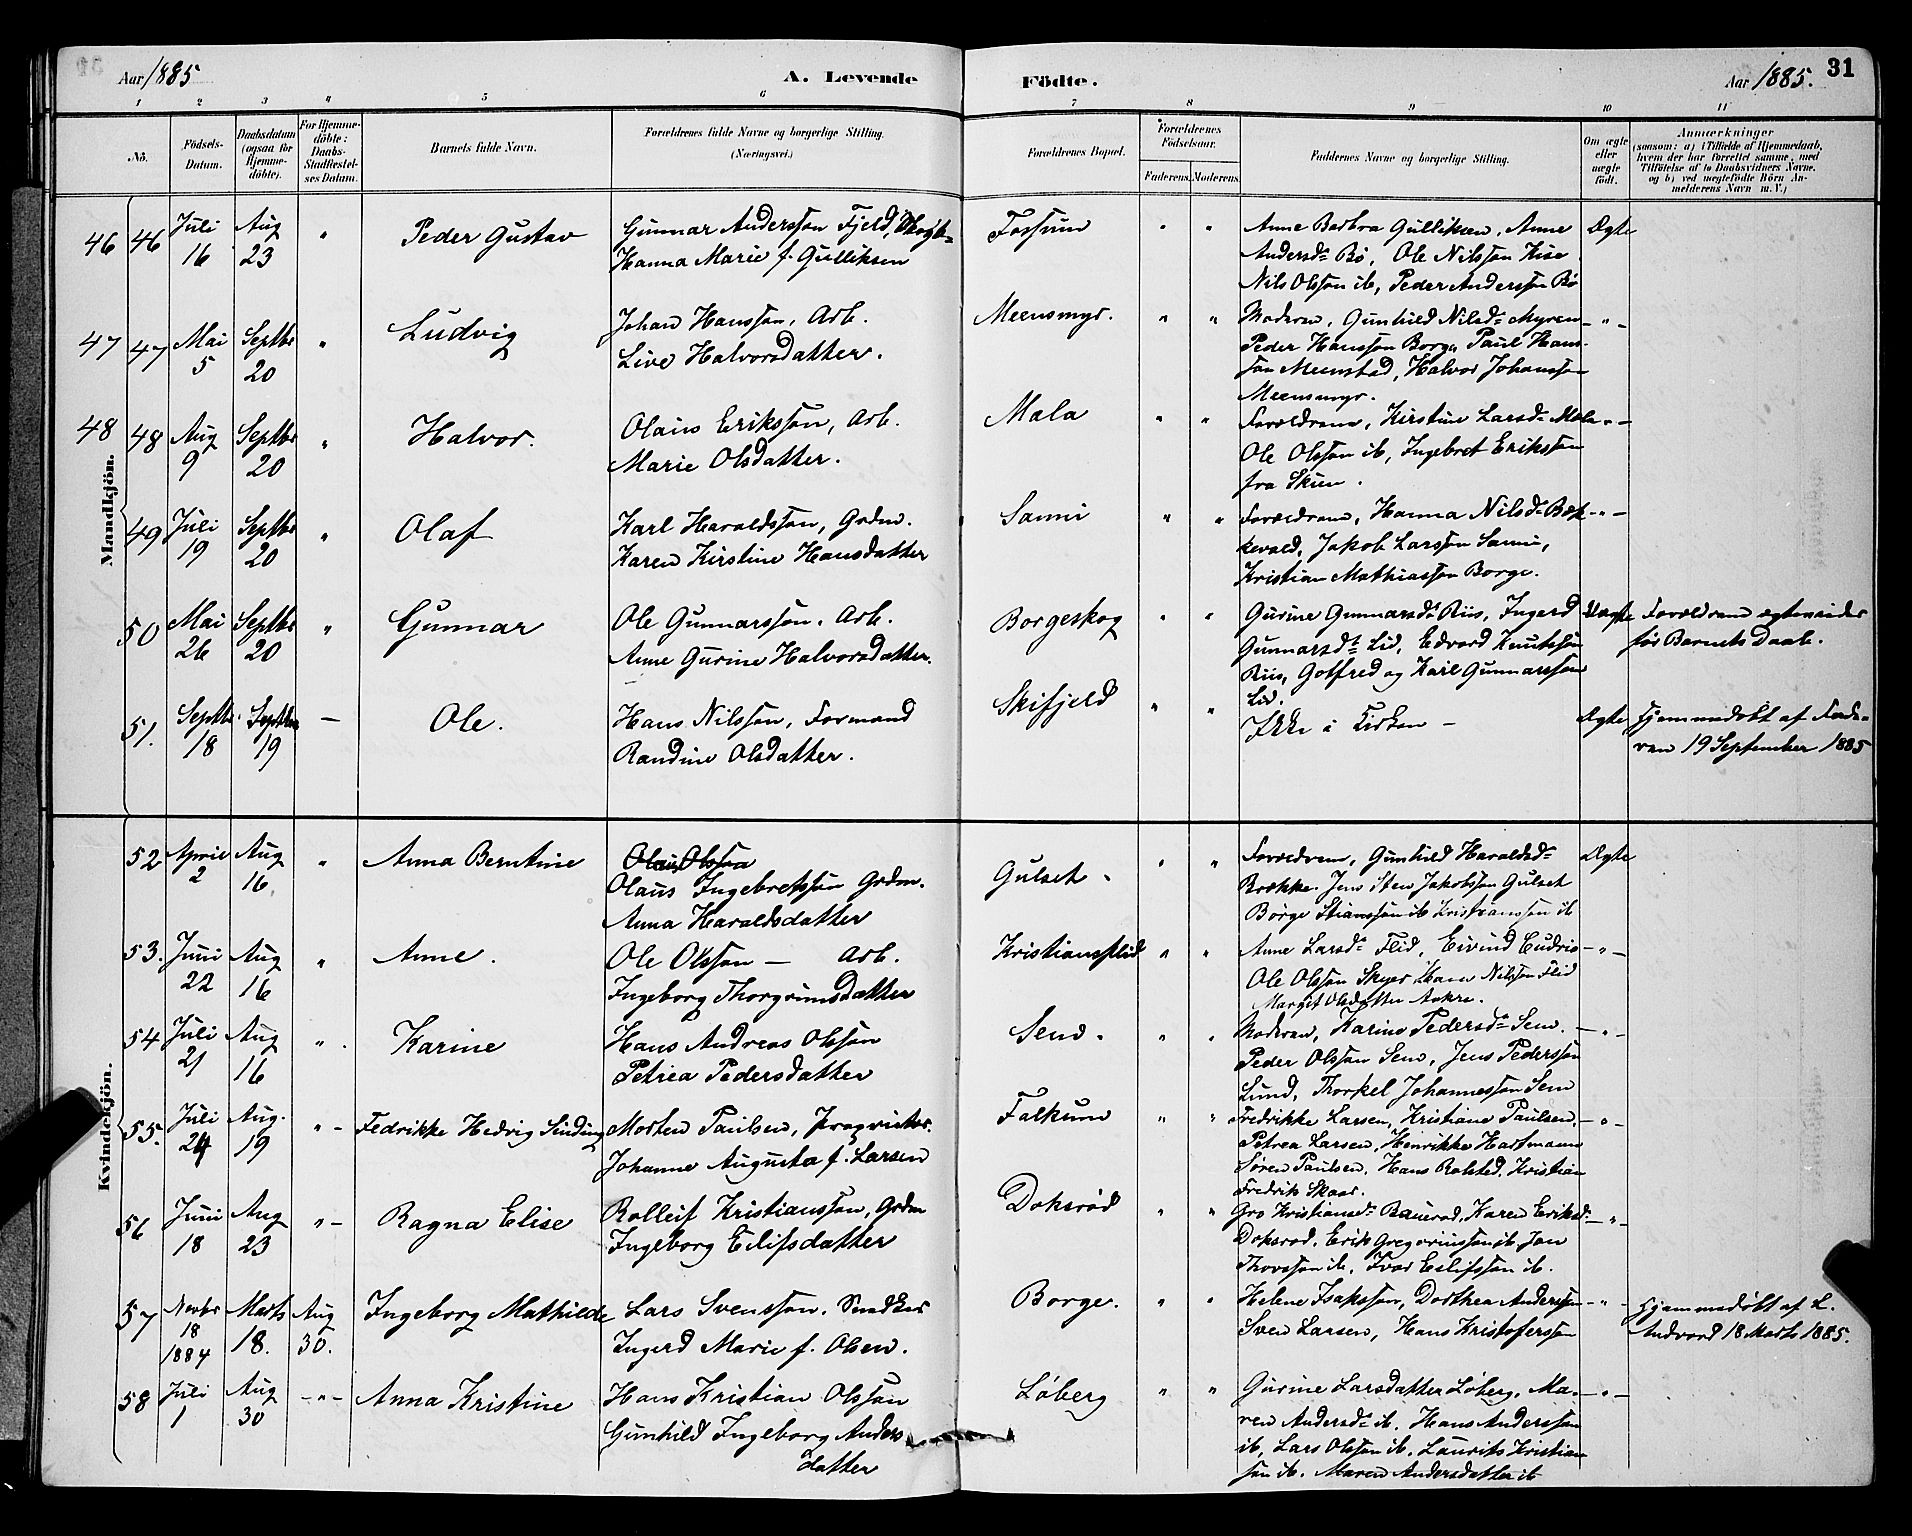 Aar 1885
A. Levende
Födte.
Aar 1885.
31
1 2 3 4 5 6 7 8 9 10 11
No.
Födsels-
Datum.
Daabsdatum
(ogsaa for
Hjemme-
döbte).
For Hjemme-
döbte:
Daabs-
Stadfæstel-
ses Datum.
Barnets fulde Navn.
Forældrenes fulde Navne og borgerlige Stilling.
(Næringsvei.)
Forældrenes Bopæl.
Forældrenes
Födselsaar.
Faderens. Moderens.
Faddernes Navne og borgerlige Stilling.
Om ægte
eller
uægte
födt.
Anmærkninger
(saasom: a) i Tilfælde af Hjemmedaab,
hvem der har forrettet samme, med
Tilföielse af to Daabsvidners Navne.
og b) ved uægtefödte Börn An-
melderens Navn m. V.)
Mandkjön.
46 46 Juli 16 Aug 23 " Peder Gustav
Gunnar Andersson Fjeld,
Hanna Marie f. Gulliksen
Fossum " "
Anne Barbra Gulliksen, Anne
Andersdr Bø, Ole Nilsson Kise
Nils Olsson ib, Peder Andersson Bø
Ægte
47 47 Mai 5 Septbr 20 " Ludvig
Johan Hansson, Arb.
Live Halvorsdatter.
Meensmyr. " "
Moderen, Gunhild Nilsdr Myren
Peder Hansson Borge, Paul Hans-
son Meenstad, Halvor Johansson
Meensmyr.
– " –
48 48 Aug 9 Septbr 20 " Halvor.
Olaus Eriksson, Arb.
Marie Olsdatter.
Mæla " "
Forældrene, Kirstine Larsdr Mæla
Ole Olsson ib, Ingebret Eriksson
fra Skien.
" –
49 Juli 19 Septbr 20 " Olaf
Karl Haraldsson, Grdm.
Karen Kirstine Hansdatter
Sanni " "
Forældrene, Hanna Nilsdr Bæk-
kevold, Jakob Larsson Sanni,
Kristian Mathiasson Borge.
– " –
50 Mai 26 Septbr 20 " Gunnar
Ole Gunnarsson, Arb.
Anne Gurine Halvorsdatter.
Borgeskog " "
Gurine Gunnarsdr Riis, Ingerd
Gunnarsdr Lid, Edvard Knutsson
Riis, Gotfred og Karl Gunnarsson
Lid.
Uægte
Forældrene egteviede
før Barnets Daab.
51. Septbr 18 Septbr 19 – Ole.
Hans Nilsson, Formand
Randine Olsdatter.
Skifjeld " "
Ikke i Kirken –
Ægte
Hjemmedøbt af Fade-
ren 19 September 1885
Kvindekjön.
52 April 2 Aug 16 " Anna Berntine
Olaus Olsson
Olaus Ingebretsson Grdm.
Anna Haraldsdatter
Gulset " "
Forældrene, Gunhild Haraldsdr
Brække. Jens Sten Jakobsson Gulset
Børge Stiansson ib Kristiansson ib
Ægte
53. Juni 22 Aug 16 " Anne.
Ole Olsson – Arb.
Ingeborg Thorgrimsdatter
Kristiansflid " "
Anne Larsdr Flid, Eivind
Ole Olsson Skyer Hans Nilsson Flid
Margit Olsdatter
– " –
54 Juli 21 Aug 16 " Karine
Hans Andreas Olsson
Petrea Pedersdatter
Sem. " "
Moderen, Karine Pedersdr Sem.
Peder Olsson Sem, Jens Pedersson
Lund, Thorkel Johannesson Sem
– " –
55. Juli 24 Aug. 19 " – Fedrikke Hedvig Sinding
Morten Paulsen,
Johanne Augusta f. Larsen
Falkum " "
Fredrikke Larsen, Kristiane Paulsen,
Petrea Larsen, Henrikke Hartmann
Søren Paulsen, Hans Rolsted, Kristian
Fredrik Skaar.
– " –
56 Juni 18 Aug 23 " – Ragna Elise
Rolleif Kristiansson, Grdm
Ingeborg Eilifsdatter
Doksrød " "
Gro Kristiansdr Bauerød, Karen Eriksdr
Doksrød, Erik Gregoriusson ib, Jon
Thovsson ib, Ivar Eilifsson ib.
– " –
57 Novbr 18 1884 Marts 18. Aug 30. Ingeborg Mathilde
Lars Svensson. Snedker
Ingerd Marie f. Olsen.
Borge. " "
Helene Isaksson, Dorthea Andersson
Sven Larsen, Hans Kristofersson
– " –
Hjemmedøbt af L.
Andvord 18 Marts 1885.
58 Juli 1 Aug 30 – " – Anna Kristine
Hans Kristian Olsson
Gunhild Ingeborg Anders
datter
Løberg " "
Gurine Larsdatter Løberg. Ma-
ren Andersdr ib. Hans Andersson
ib, Lars Olsson ib. Laurits Kristian
son ib. Maren Andersdatter ib
– " –